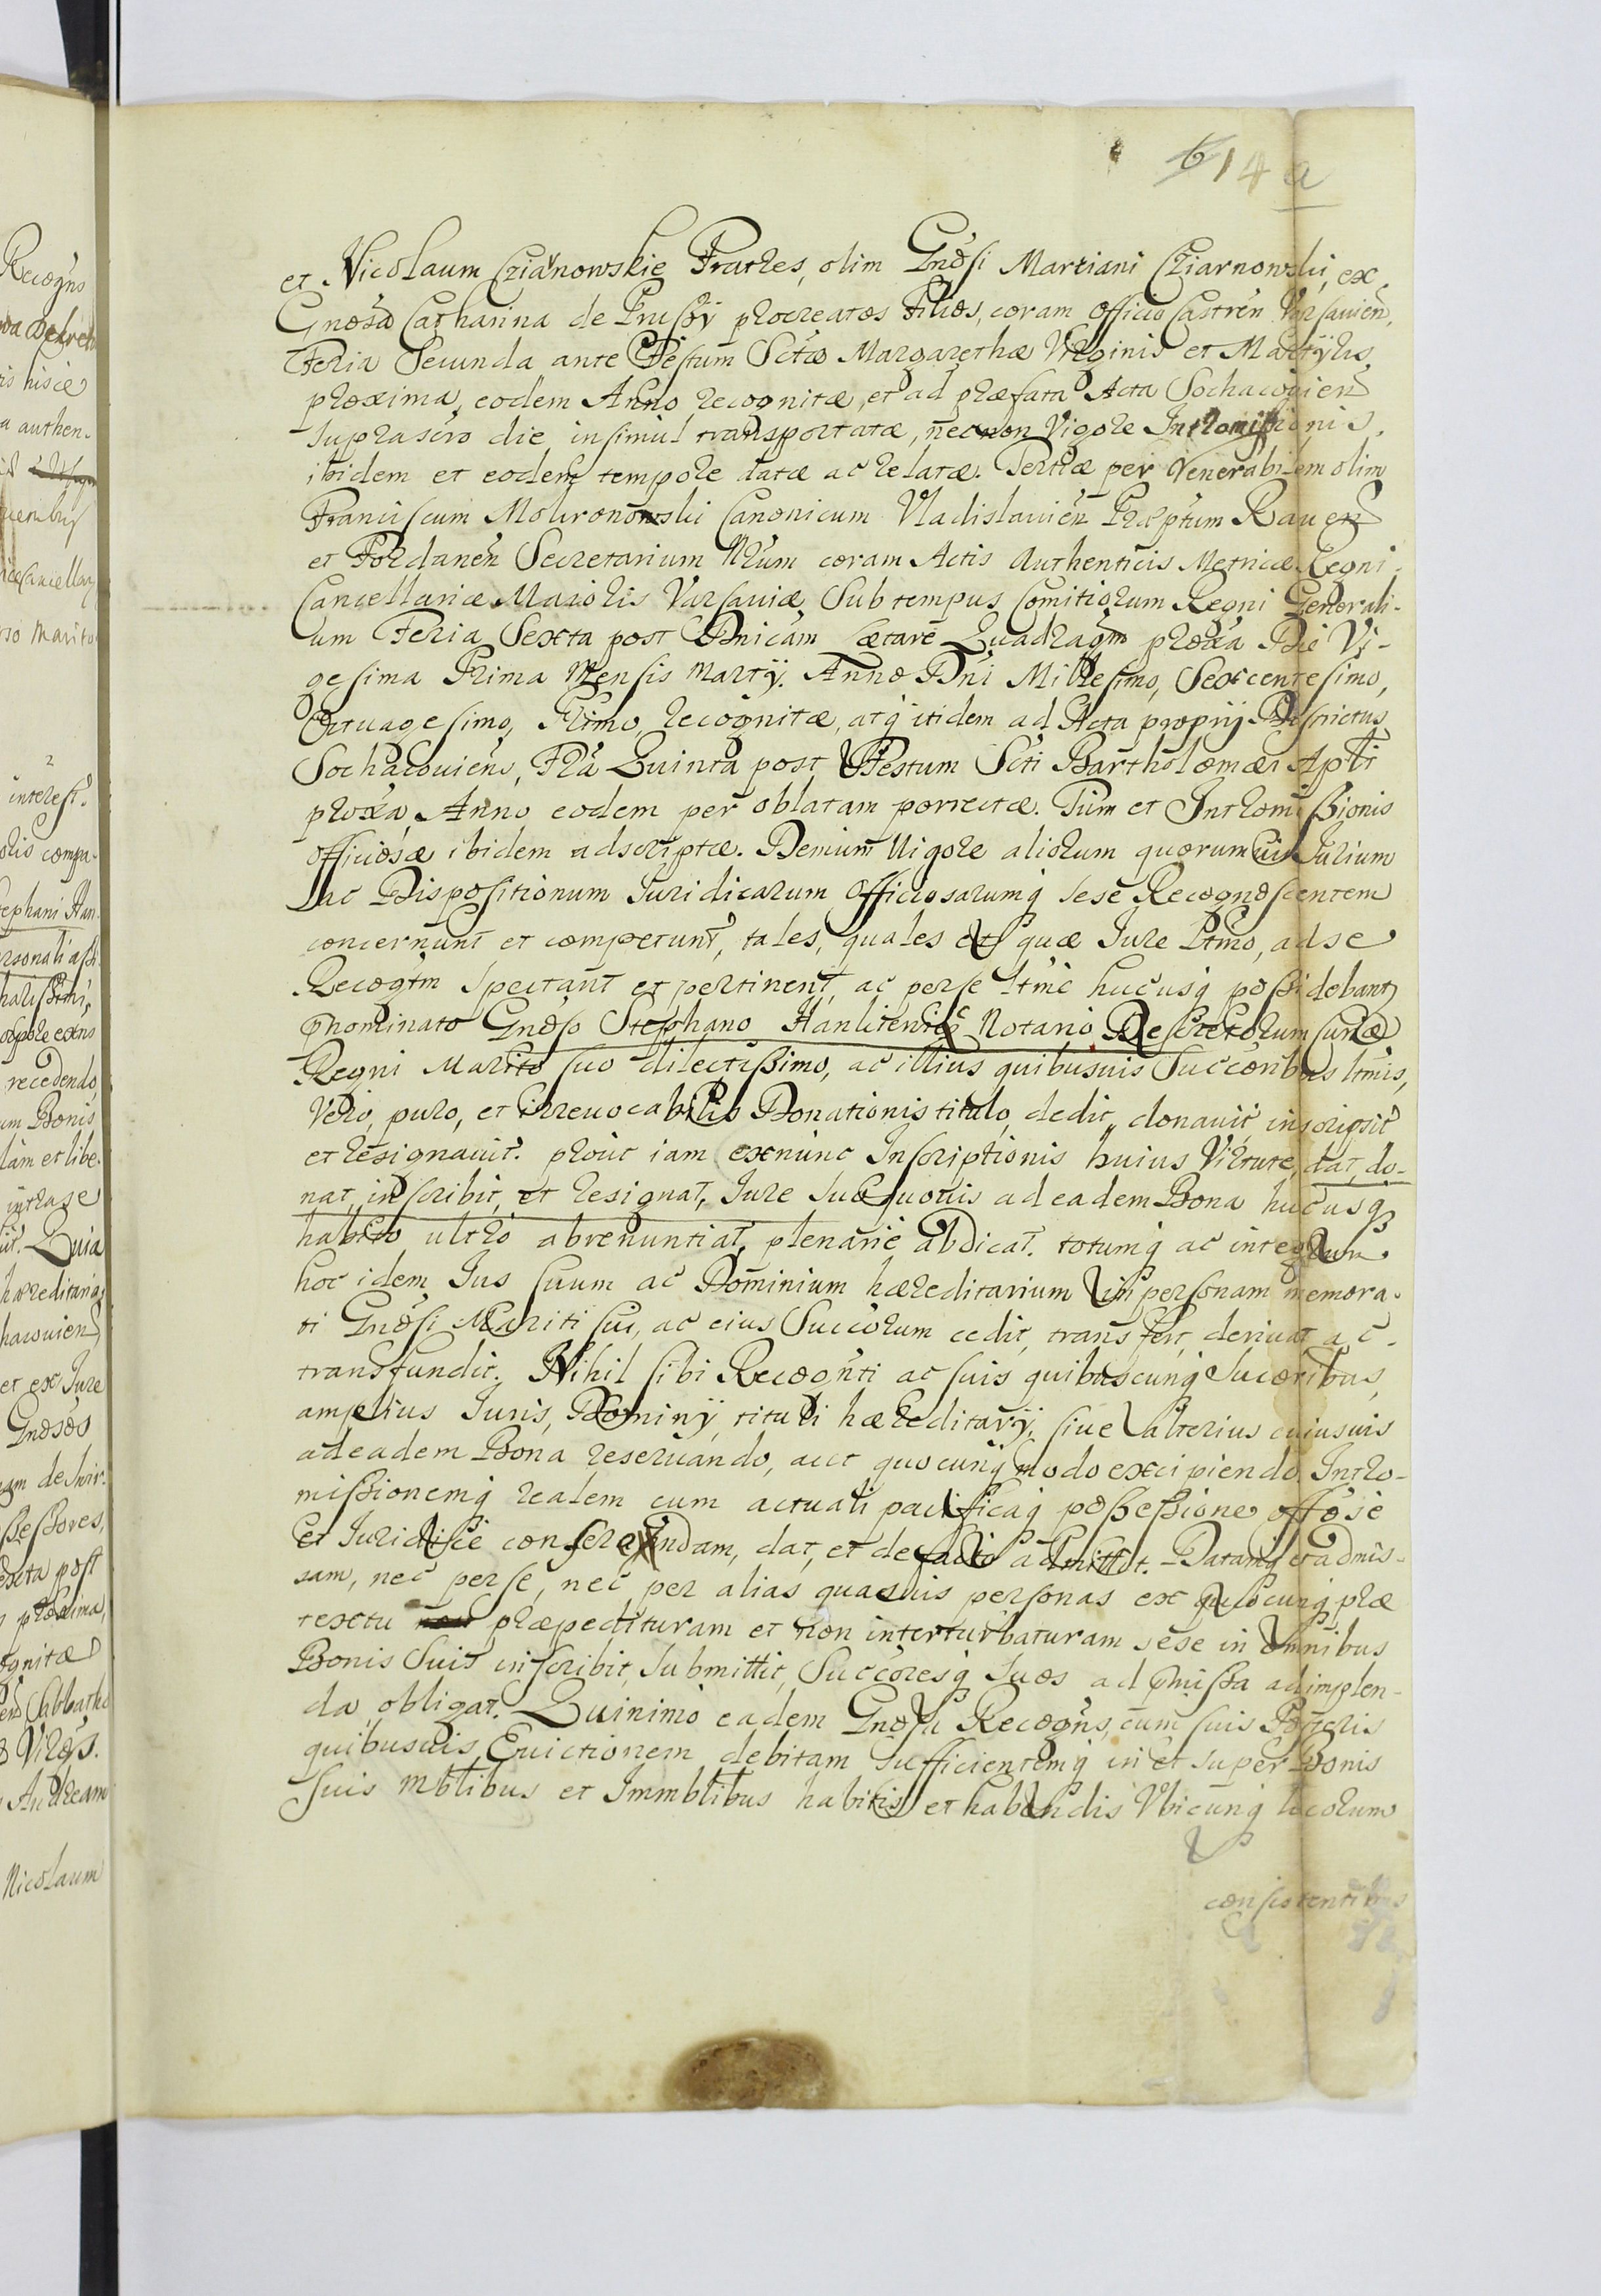 614 a
et Nicolaum Cziarnowskie Fratres, olim Gnosi Martiani Cziarnowski, ex
Gnosa Catharina de Prussÿ procreatos Filios, coram Officio Castren Varsavien,
Feria Secunda ante Festum Sctæ Margarethæ Virginis et Martÿris
proxima, eodem Anno recognitæ, et ad præfata Acta Sochacovien
suprascro die insimul transportatæ, necnon Vigore Intromissionis,
ibidem et eodem tempore datæ ac relatæ. Tertiæ per Venerabilem olim
Franciscum Mokronowski Canonicum Vladislavien Præptum Raven
et Fordanen Secretarium Nrum coram Actis Authenticis Metricæ Regni
Cancellariæ Maioris Varsaviæ Sub tempus Comitiorum Regni Generali-
um Feria Sexta post Dnicam Lætare Quadragm proxa Die Vi-
gesima Prima Mensis Martÿ. Anno Dni Millesimo, Sexcentesimo,
Octuagesimo, Primo, recognitæ, atq itidem ad Acta proprÿ Districtus
Sochacoviens, Fria Quinta post Festum Scti Bartholomæi Apli
proxa, Anno eodem per oblatam porrectæ. Tum et Intromissionis
officiosæ ibidem adscriptæ. Demum Vigore aliorum quorumvis Iurium
ac Dispositionum Iuridicarum Officiosarumq sese Recognoscentem
concernunt et competunt, tales, quales et quæ Iure Ltmo, ad se
Recogtm spectant et pertinent, ac per se ltme hucusq possidebant
pnominato Gnoso Stephano Hankiewicz Notario Decretorum Curiæ
Regni Marito suo dilectissimo, ac illius quibusvis Succoribus ltmis,
Vero, puro, et irrevocabilis Donationis titulo, dedit, donavit, inscripsit
et resignavit. prout iam exnunc Inscriptionis huius Virtute, dat, do-
nat, inscribit, et resignat, Iure suo quovis ad eadem Bona hucusq
habito ultro abrenuntiat, plenarie abdicat. totumq ac integrum
hoc idem Ius suum ac Dominium hæreditarium in personam memora-
ti Gnosi Mariti sui, ac eius Succorum cedit, transfert, derivat, ac
transfundit. Nihil sibi Recognti ac suis quibuscunq Sucoribus,
amplius Iuris, Dominÿ, tituli hæreditarÿ, sive alterius cuiusvis
ad eadem Bona reservando, aut quocunq modo excipiendo. Intro-
missionemq realem cum actuali pacificaq possessione offose
et Iuridice conferendam, dat, et de facto admittit. Datamq et admis-
sam, nec per se, nec per alias quasvis personas ex quocunq præ
textu præpedituram et non interturbaturam sese in omnibus
Bonis Suis inscribit, submittit, Succoresq suos ad pmissa adimplen-
da obligat. Quinimo eadem Gnosa Recogns, cum suis Posteris
quibusvis, Evictionem debitam sufficientemq in et super Bonis
suis mblibus et Immblibus habitis et habendis Vbicunq locorum
consistentibus